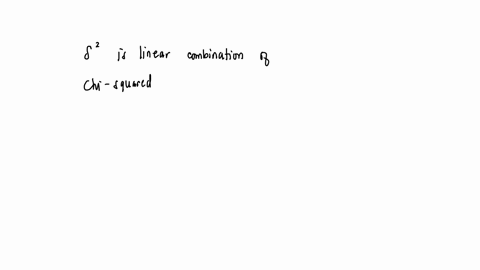 δ² is linear combination of
Chi-squared